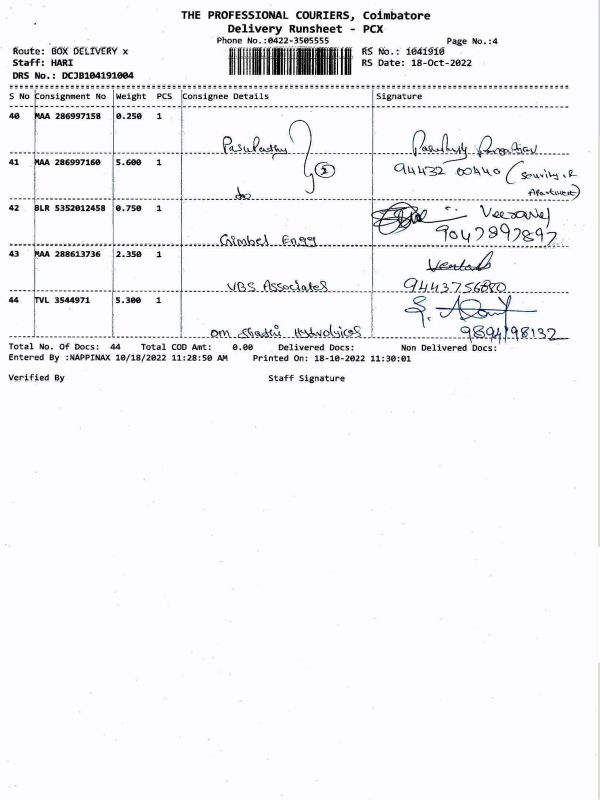 THE PROFESSIONAL COURIERS, Coimbatore
Delivery Runsheet - PCX
Phone No.:0422-3505555
Page No.:4
Route: BOX DELIVERY x
RS No.: 1041910
Staff: HARI
RS Date: 18-Oct-2022
DRS No.: DCJB104191004
S No Consignment No Weight PCS Consignee Details Signature
40 MAA 286997158 0.250 1
Pasupathy
41 MAA 286997160 5.600 1
2
94432 00440
do
42 BLR 5352012458 0.750 1
Coimbel Engg
9047897897
43 MAA 288613736 2.350 1
VBS Associates
9443756880
44 TVL 3544971 5.300 1
om Shastri Hydrolyics
9894198132
Total No. Of Docs: 44 Total COD Amt: 0.00 Delivered Docs: Non Delivered Docs:
Entered By :NAPPINAX 10/18/2022 11:28:50 AM Printed On: 18-10-2022 11:30:01
Verified By Staff Signature